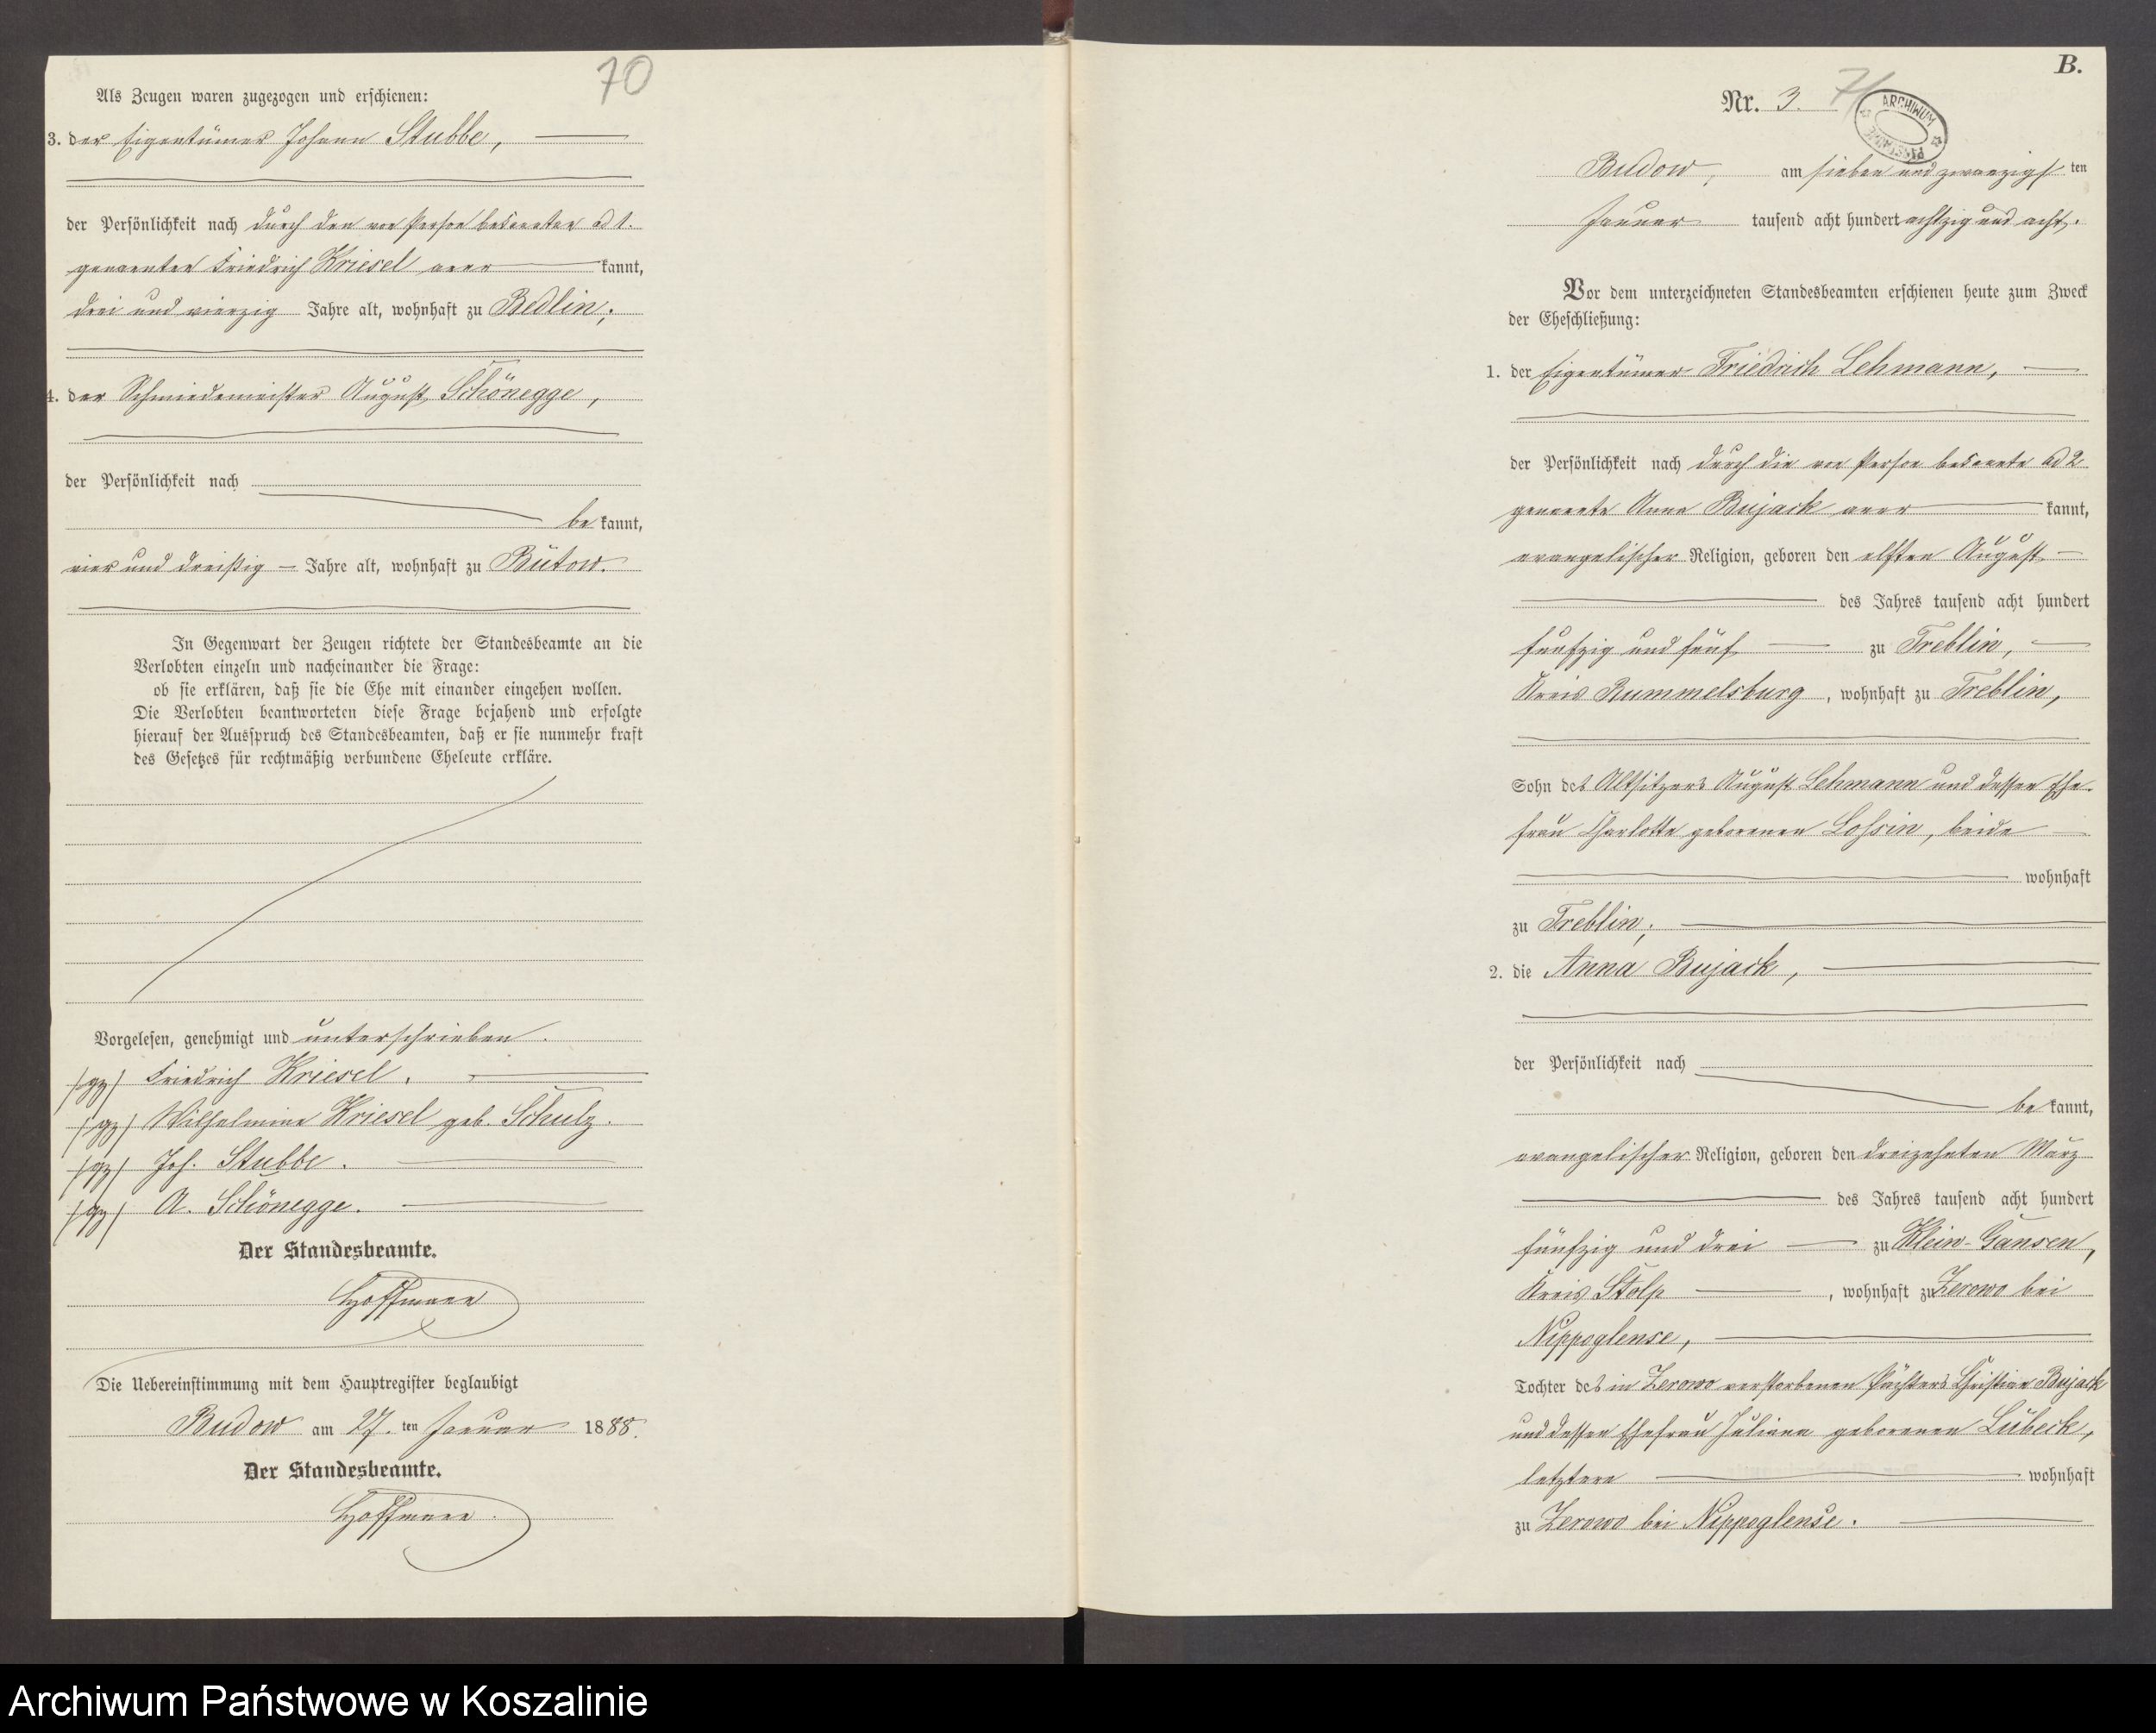 70
Als Zeugen waren zugezogen und erschienen:
3. der Eigentümer Johann Stubbe,
der Persönlichkeit nach durch den von Person bekannten ad 1.
genannten Friedrich Kriesel aner kannt,
drei und vierzig Jahre alt, wohnhaft zu Bedlin;
4. der Schmiedemeister August Schönegge,
der Persönlichkeit nach
be kannt,
vier und dreißig Jahre alt, wohnhaft zu Bütow.
In Gegenwart der Zeugen richtete der Standesbeamte an die
Verlobten einzeln und nacheinander die Frage:
ob sie erklären, daß sie die Ehe mit einander eingehen wollen.
Die Verlobten beantworteten diese Frage bejahend und erfolgte
hierauf der Ausspruch des Standesbeamten, daß er sie nunmehr kraft
des Gesetzes für rechtmäßig verbundene Eheleute erkläre.
Vorgelesen, genehmigt und unterschrieben.
(gz) Friedrich Kriesel.
(gz) Wilhelmine Kriesel geb. Schulz.
(gz) Joh. Stubbe.
(gz) A. Schönegge.
Der Standesbeamte.
Hoffmann
Die Uebereinstimmung mit dem Hauptregister beglaubigt
Budow am 27. ten Januar 1888.
Der Standesbeamte.
Hoffmann.
B.
Nr. 3. 71
ARCHIWUM
Budow, am sieben und zwanzigs ten
Januar tausend acht hundert achtzig und acht.
Vor dem unterzeichneten Standesbeamten erschienen heute zum Zweck
der Eheschließung:
1. der Eigentümer Friedrich Lehmann,
der Persönlichkeit nach durch die von Person bekannte ad 2
genannte Anna Bujack aner kannt,
evangelischer Religion, geboren den elften August
des Jahres tausend acht hundert
fünfzig und fünf zu Treblin,
Kreis Rummelsburg, wohnhaft zu Treblin,
Sohn des Altsitzers August Lehmann und dessen Ehe-
frau Charlotte geborenen Lossin, beide
wohnhaft
zu Treblin;
2. die Anna Bujack,
der Persönlichkeit nach
be kannt,
evangelischer Religion, geboren den dreizehnten März
des Jahres tausend acht hundert
fünfzig und drei zu Klein-Gansen,
Kreis Stolp, wohnhaft zu Zerowo bei
Nippoglense,
Tochter des in Zerowo verstorbenen Pächters Christian Bujack
und dessen Ehefrau Juliane geborenen Lübeck,
letztere wohnhaft
zu Zerowo bei Nippoglense.
Archiwum Państwowe w Koszalinie